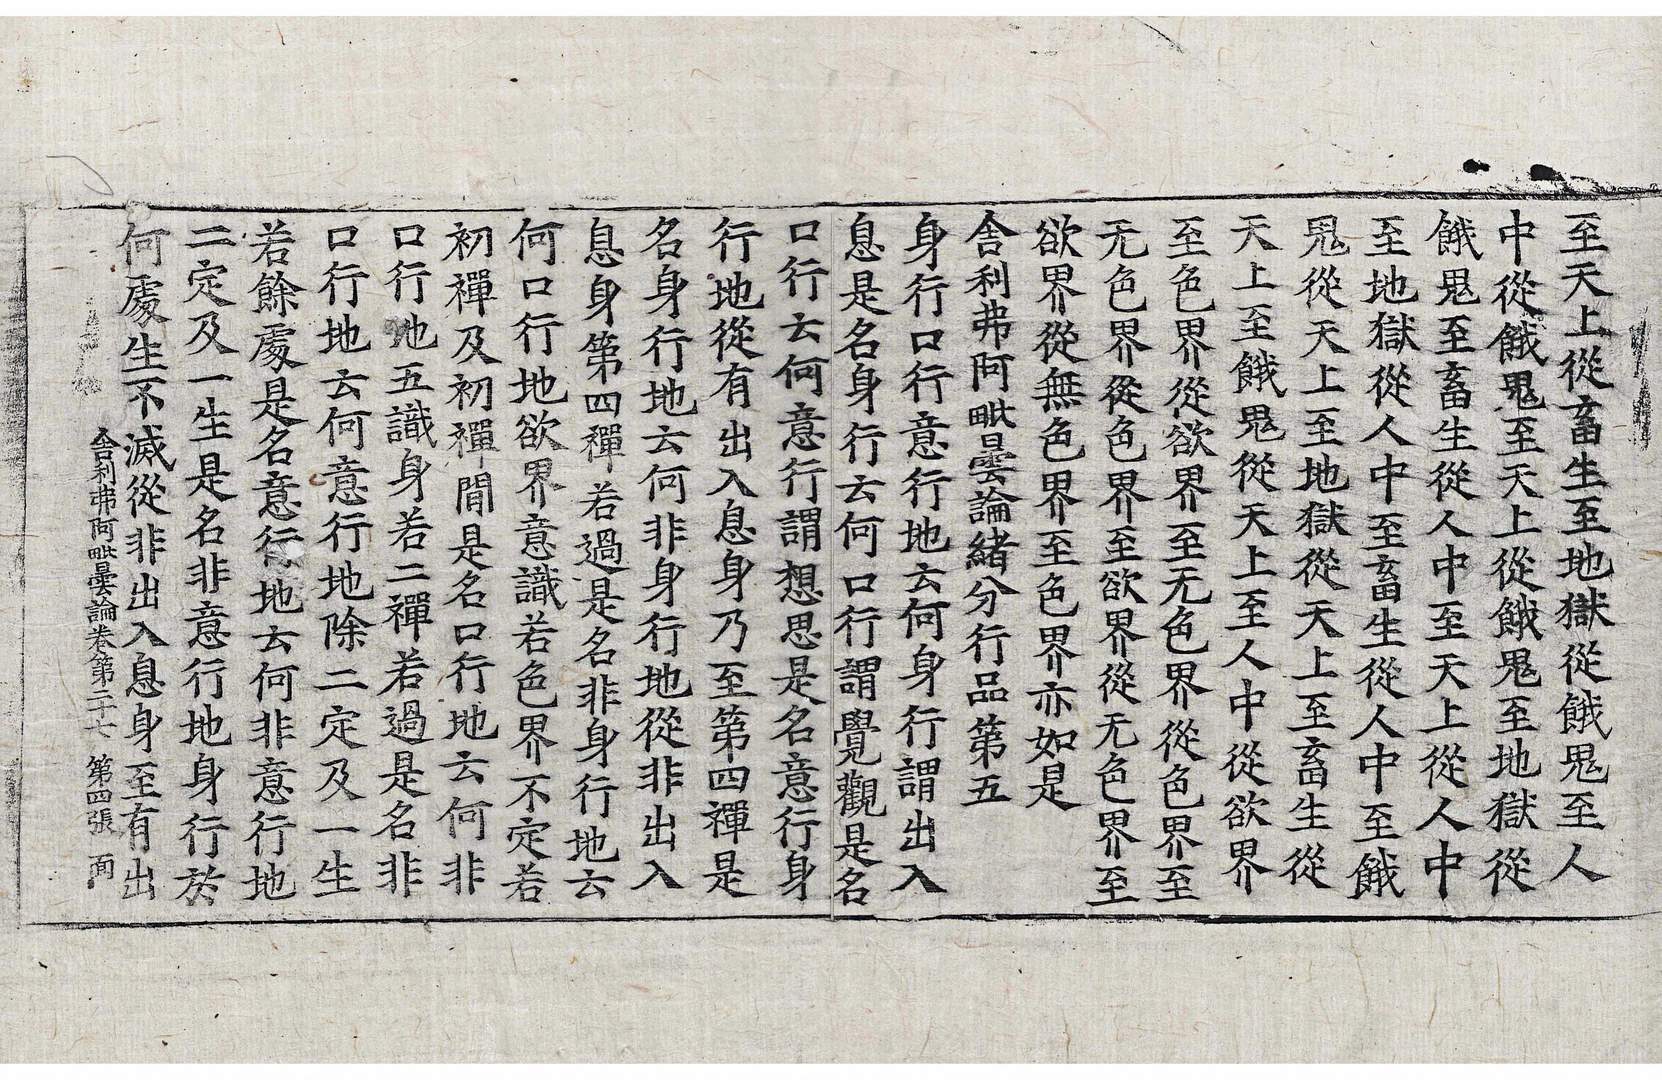 至天上從畜生至地獄從餓鬼至人
中從餓鬼至天上從餓鬼至地獄從
餓鬼至畜生從人中至天上從人中
至地獄從人中至畜生從人中至餓
鬼從天上至地獄從天上至畜生從
天上至餓鬼從天上至人中從欲界
至色界從欲界至无色界從色界至
无色界從色界至欲界從无色界至
欲界從無色界至色界亦如是
舍利弗阿毗曇論緒分行品第五
身行口行意行地云何身行謂出入
息是名身行云何口行謂覺觀是名
口行云何意行謂想思是名意行身
行地從有出入息身乃至第四禪是
名身行地云何非身行地從非出入
息身第四禪若過是名非身行地云
何口行地欲界意識若色界不定若
初禪及初禪間是名口行地云何非
口行地五識身若二禪若過是名非
口行地云何意行地除二定及一生
若餘處是名意行地云何非意行地
二定及一生是名非意行地身行於
何處生不滅從非出入息身至有出
舍利弗阿毗曇論卷第二十七 第四張